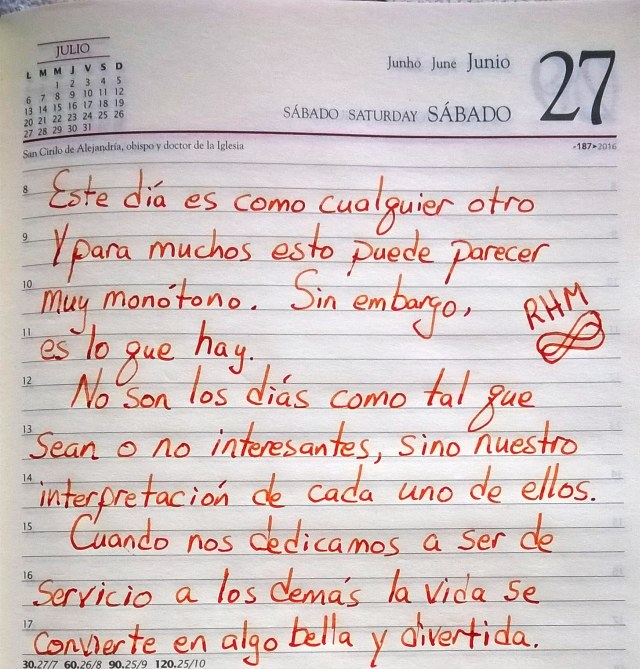 JULIO
L M M J V S D
1 2 3 4 5
6 7 8 9 10 11 12
13 14 15 16 17 18 19
20 21 22 23 24 25 26
27 28 29 30 31
Junho June Junio
27
SÁBADO SATURDAY SÁBADO
San Cirilo de Alejandría, obispo y doctor de la Iglesia
-187>2016
8 Este día es como cualquier otro
9 Y para muchos esto puede parecer
10 muy monótono. Sin embargo,
RHM
11 es lo que hay.
12 No son los días como tal que
13 sean o no interesantes, sino nuestro
14 interpretación de cada uno de ellos.
15 Cuando nos dedicamos a ser de
16 servicio a los demás la vida se
17 convierte en algo bella y divertida.
30.27/7 60.26/8 90.25/9 120.25/10